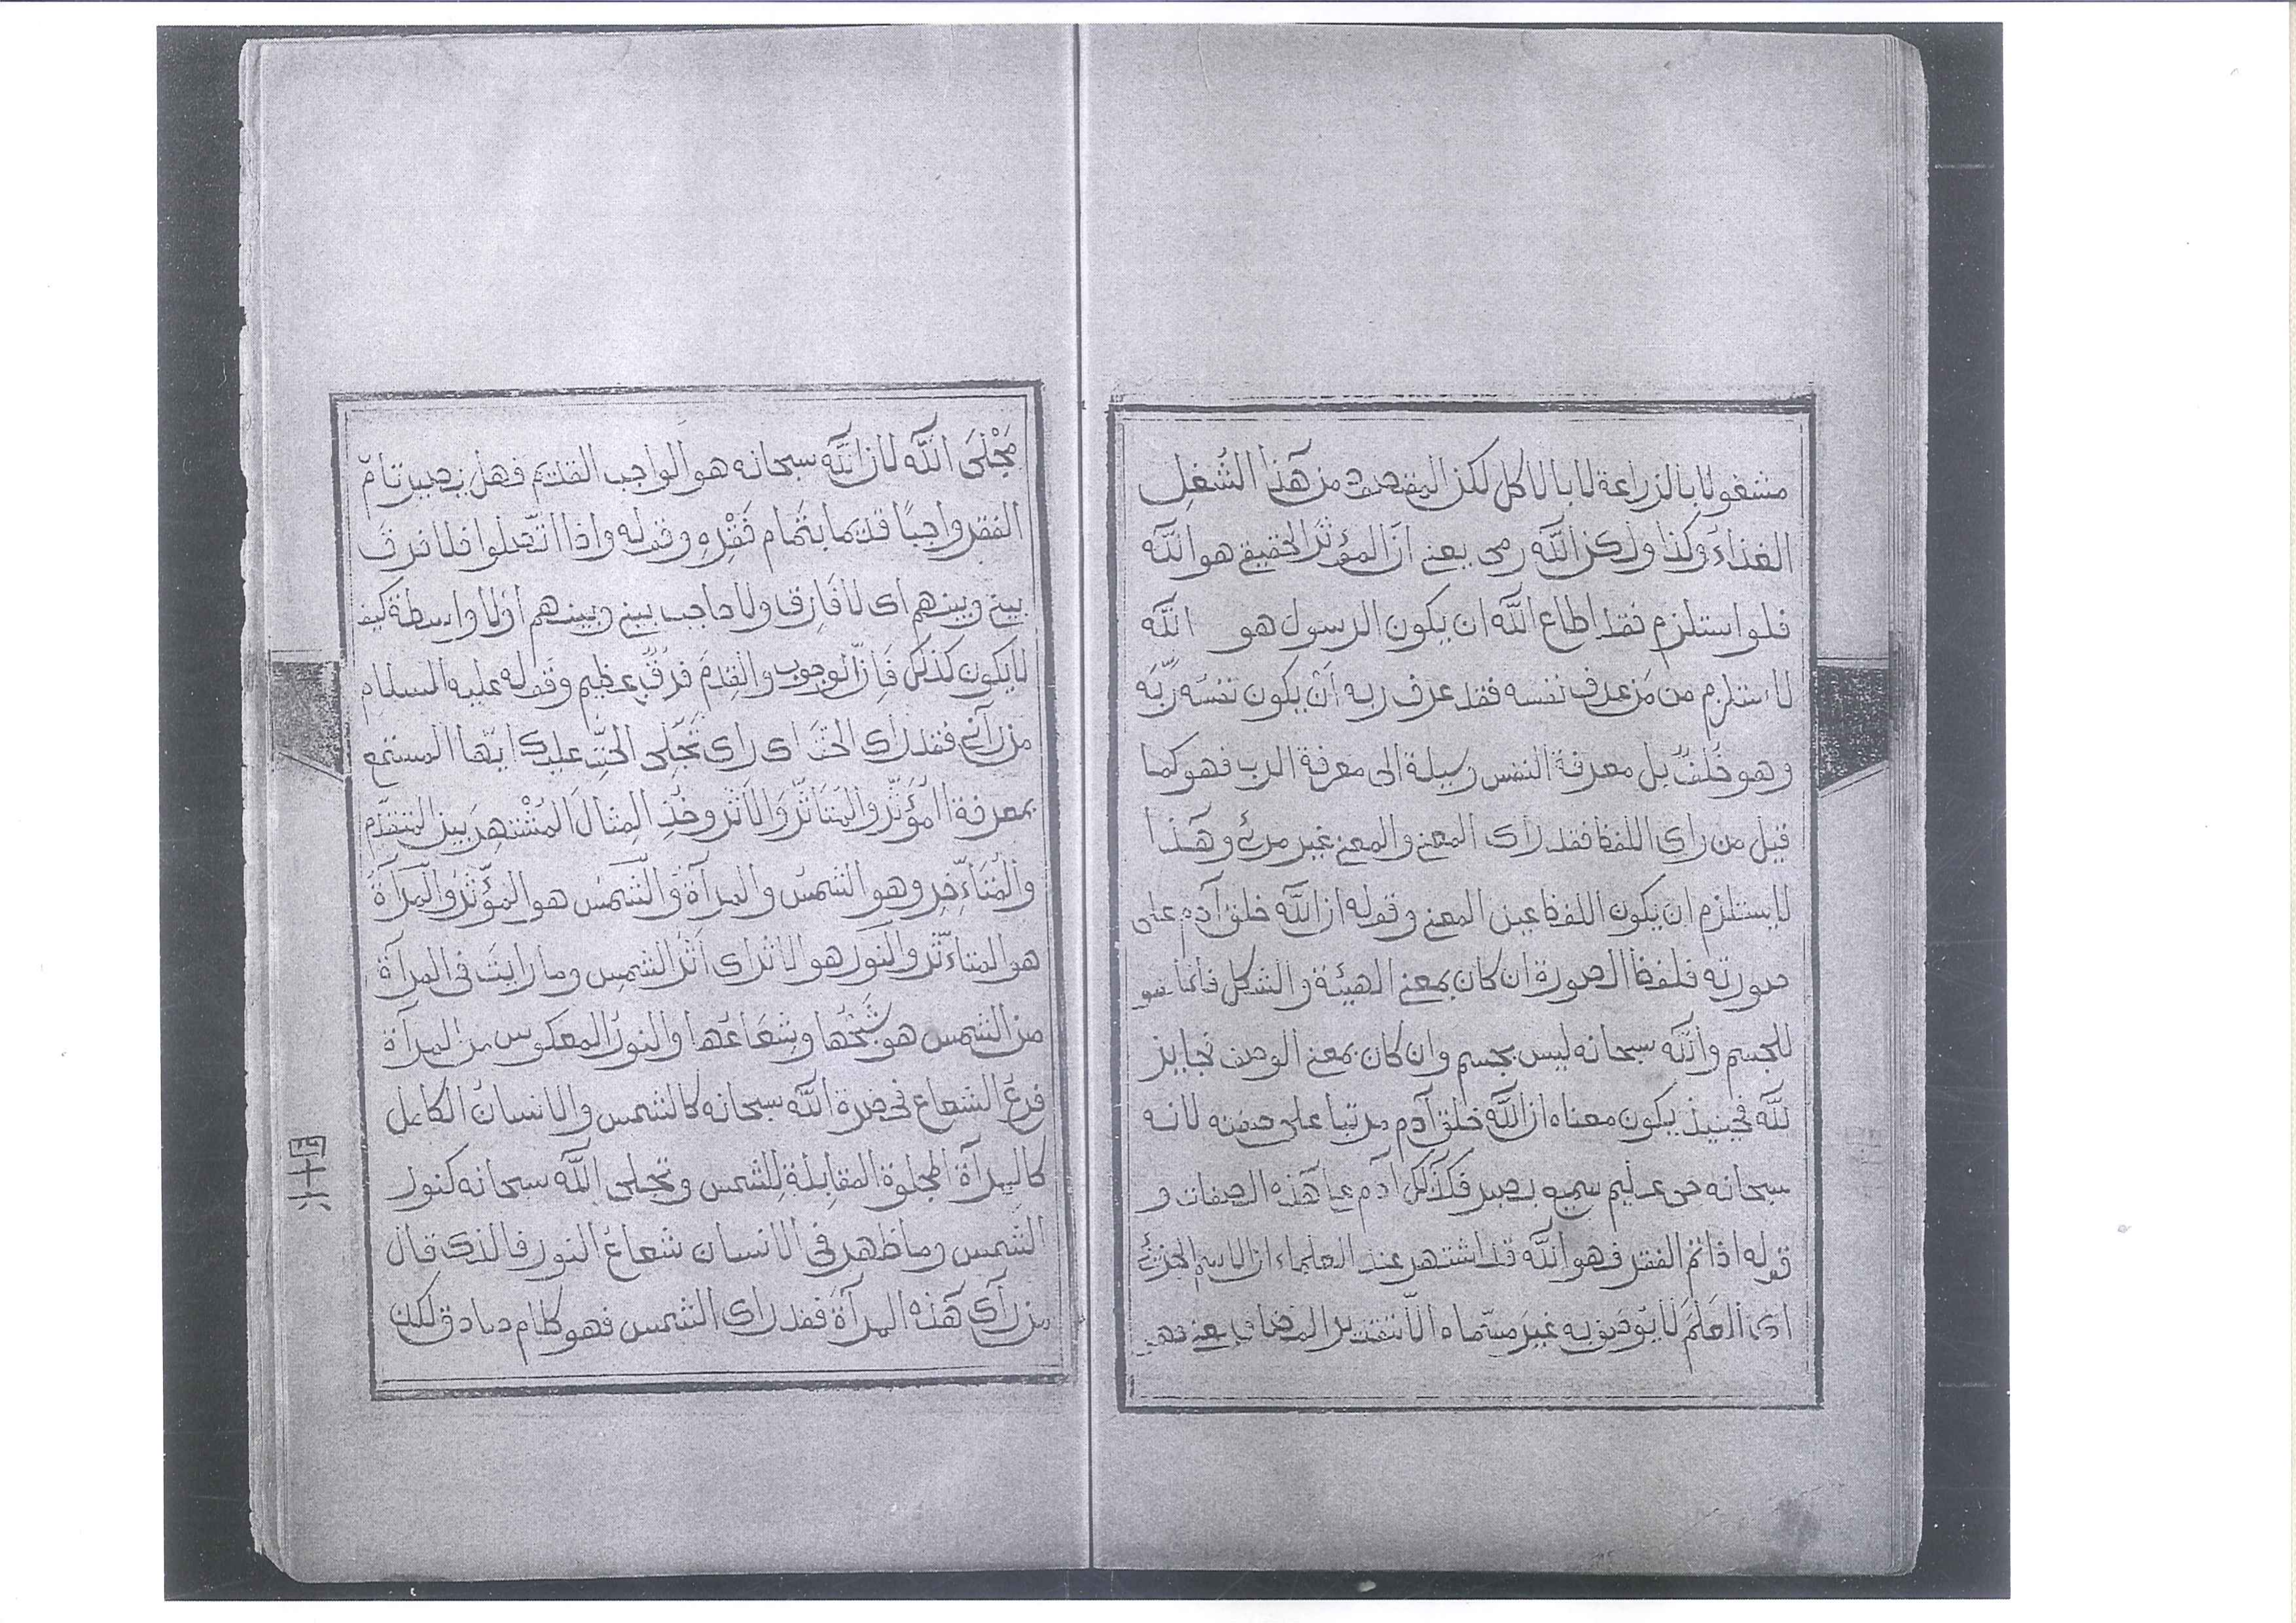 مشغولا بالزراعة لا بالاكل لكن المقصود من هذا الشُغلِ
الغذاءَ وكذا ولكن الله رمى يعنى انّ المؤثرَ الحقيقى هو الله
فلو استلزم فقد اطاع الله ان يكون الرسول هو الله
لاستلزم من مَن عرف نفسه فقد عرف ربه اَنْ يكون نفسُه ربَّه
وهو خُلفٌ بل معرفة النفس وسيلة الى معرفة الرب فهو كما
قيل من راى اللفظ فقد راى المعنى والمعنى غير مرئ وهذا
لايستلزم ان يكون اللفظ عين المعنى وقوله ان الله خلق آدم على
صورته فلفظ الصورة ان كان بمعنى الهيئة والشكل فانما هو
للجسم والله سبحانه ليس بجسم وان كان بمعنى الوصف فجايز
لله فحينيذ يكون معناه ان الله خلق آدم مرتبا على صفته لانه
سبحانه حى عليم سميع بصير فكذلك آدم على هذه الصفات و
قوله اذا تم الفقر فهو الله قد اشتهر عند العلماء ان الاسم الجزئى
اى العَلَمَ لا يوصف به غير مسمّاه الّا بتقدير المضاف يعنى فهو
مَجْلَى الله لان الله سبحانه هو الواجب القديم فهل يصير تامّ
الفقر واجبًا قديما بتمام فَقْرِهِ وقوله واذا اتّصلوا فلا فرق
بينى وبينهم اى لا فَارِق ولا حاجب بينى وبينهم اوْ لا واسطة كيف
لايكون كذلك فَاِنّ الوجوب والقِدَمَ فرقٌ عظيم وقوله عليه السلام
من رآنى فقد راى الحقّ اى راى تَجَلِّى الحقِّ عليك ايّها المستمع
بمعرفة المُؤَثِّر والمُتَاَثِّر وَالْاَثَر وخُذِ المِثالَ المُشْتهِر بين المتقدّم
والمُتَاَءخِّرِ وهو الشمسُ والمرآة وَالشَّمسُ هو المؤَثِّر والمرآةُ
هو المتاءثّر والنور هو الاثر اى اثر الشمس وما رايت فى المرآة
من الشمس هو شَبَحُها وشعَاعُها والنورُ المعكوس من المرآة
فرعُ الشعاع فحضرة الله سبحانه كالشمس والانسانُ الكامل
كالمرآة المجلوة المقابلة للشمس وتجلى الله سبحانه كنور
الشمس وما ظهر فى الانسان شعاعُ النور فالذى قال
من رأى هذه المرآة فقد راى الشمس فهو كلام صادق لكن
四十六